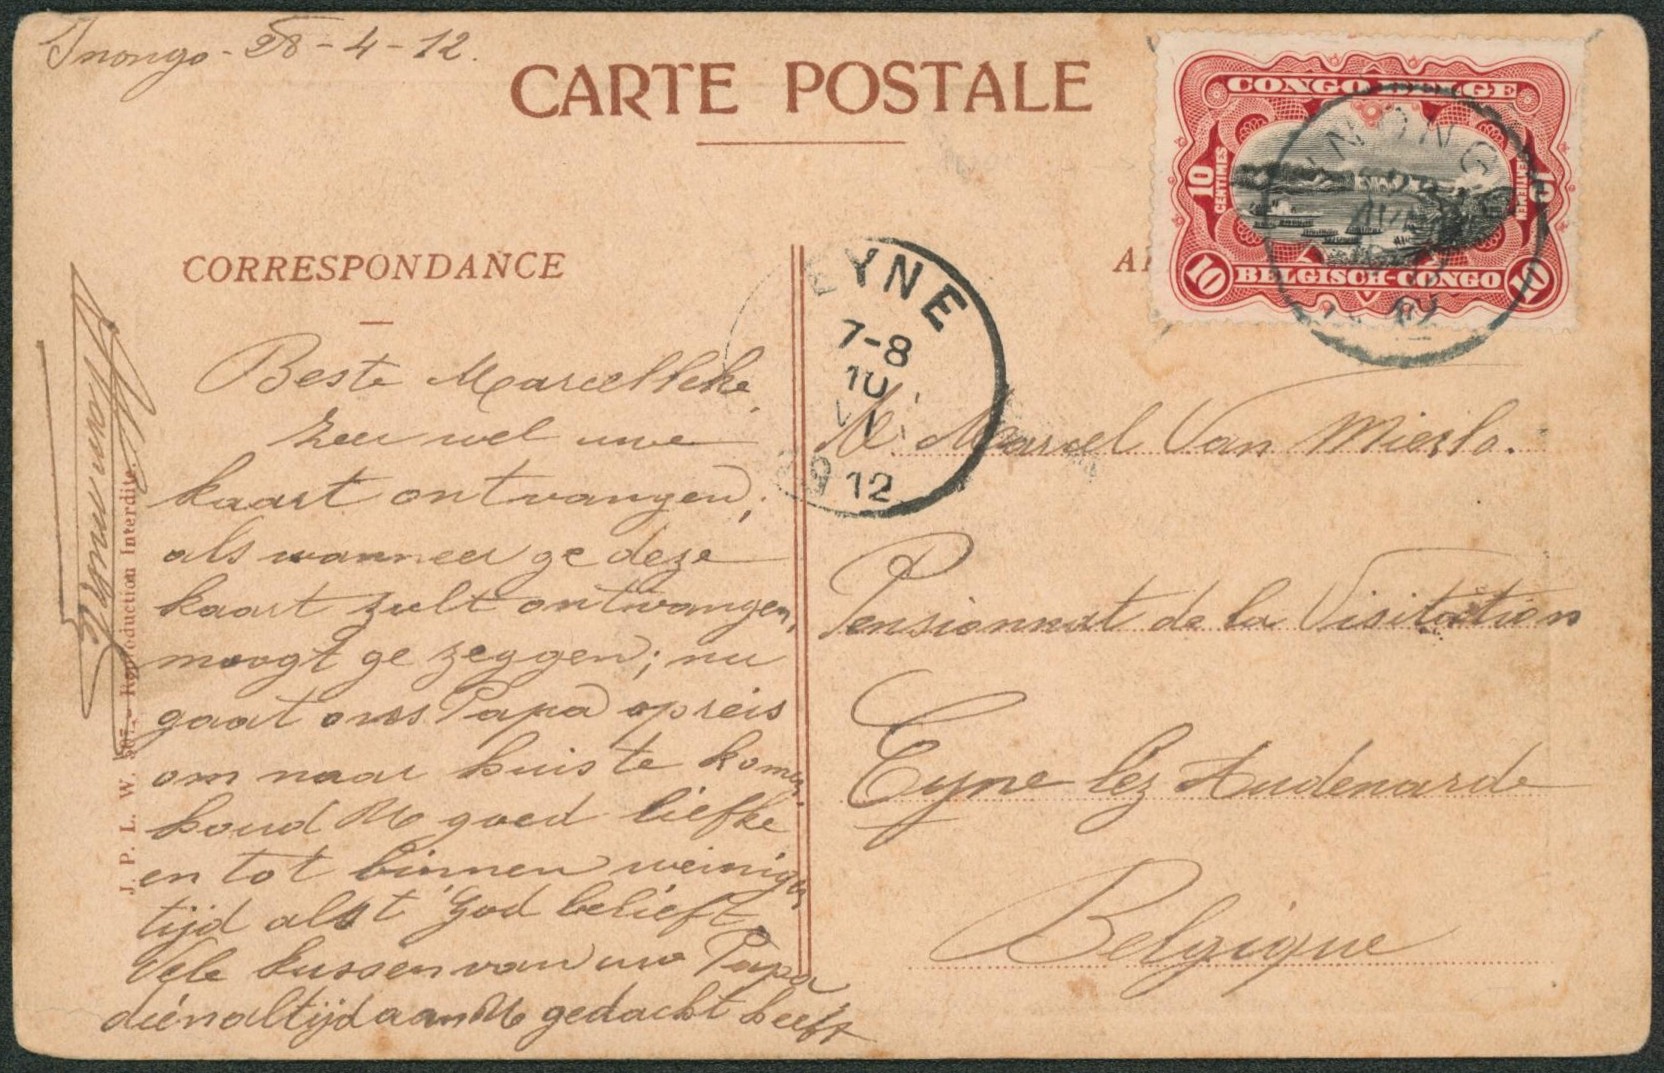 Inongo - 28 - 4 - 12.
CARTE POSTALE
CONGO BELGE
10 CENTIMES
10 CENTIEMEN
10 BELGISCH-CONGO 10
INONGO
CORRESPONDANCE
EYNE
7-8
10
12
Beste Marcelleke,
Zeer wel uwe
kaart ontvangen;
als wanneer ge deze
kaart zult ontvangen,
moogt ge zeggen; nu
gaat ons Papa op reis
om naar huis te komen,
houd U goed liefke
en tot binnen weinigen
tijd als 't God belieft.
Vele kussen van uw Papa
die n altijd aan U gedacht heeft
M. Marcel Van Mierlo.
Pensionnat de la Visitation
Eyne lez Audenarde
Belgique
J. P. L. W. 507. - Reproduction Interdite.